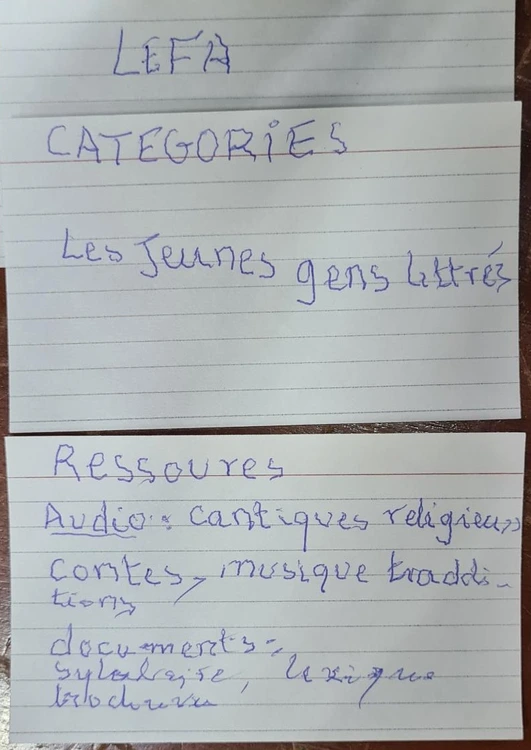 LEFA
CATEGORIES
Les jeunes gens lettrés
Ressoures
Audio : cantiques religieux
contes, musique traddi-
tions
documents :
sylabaire, lexique
brochure